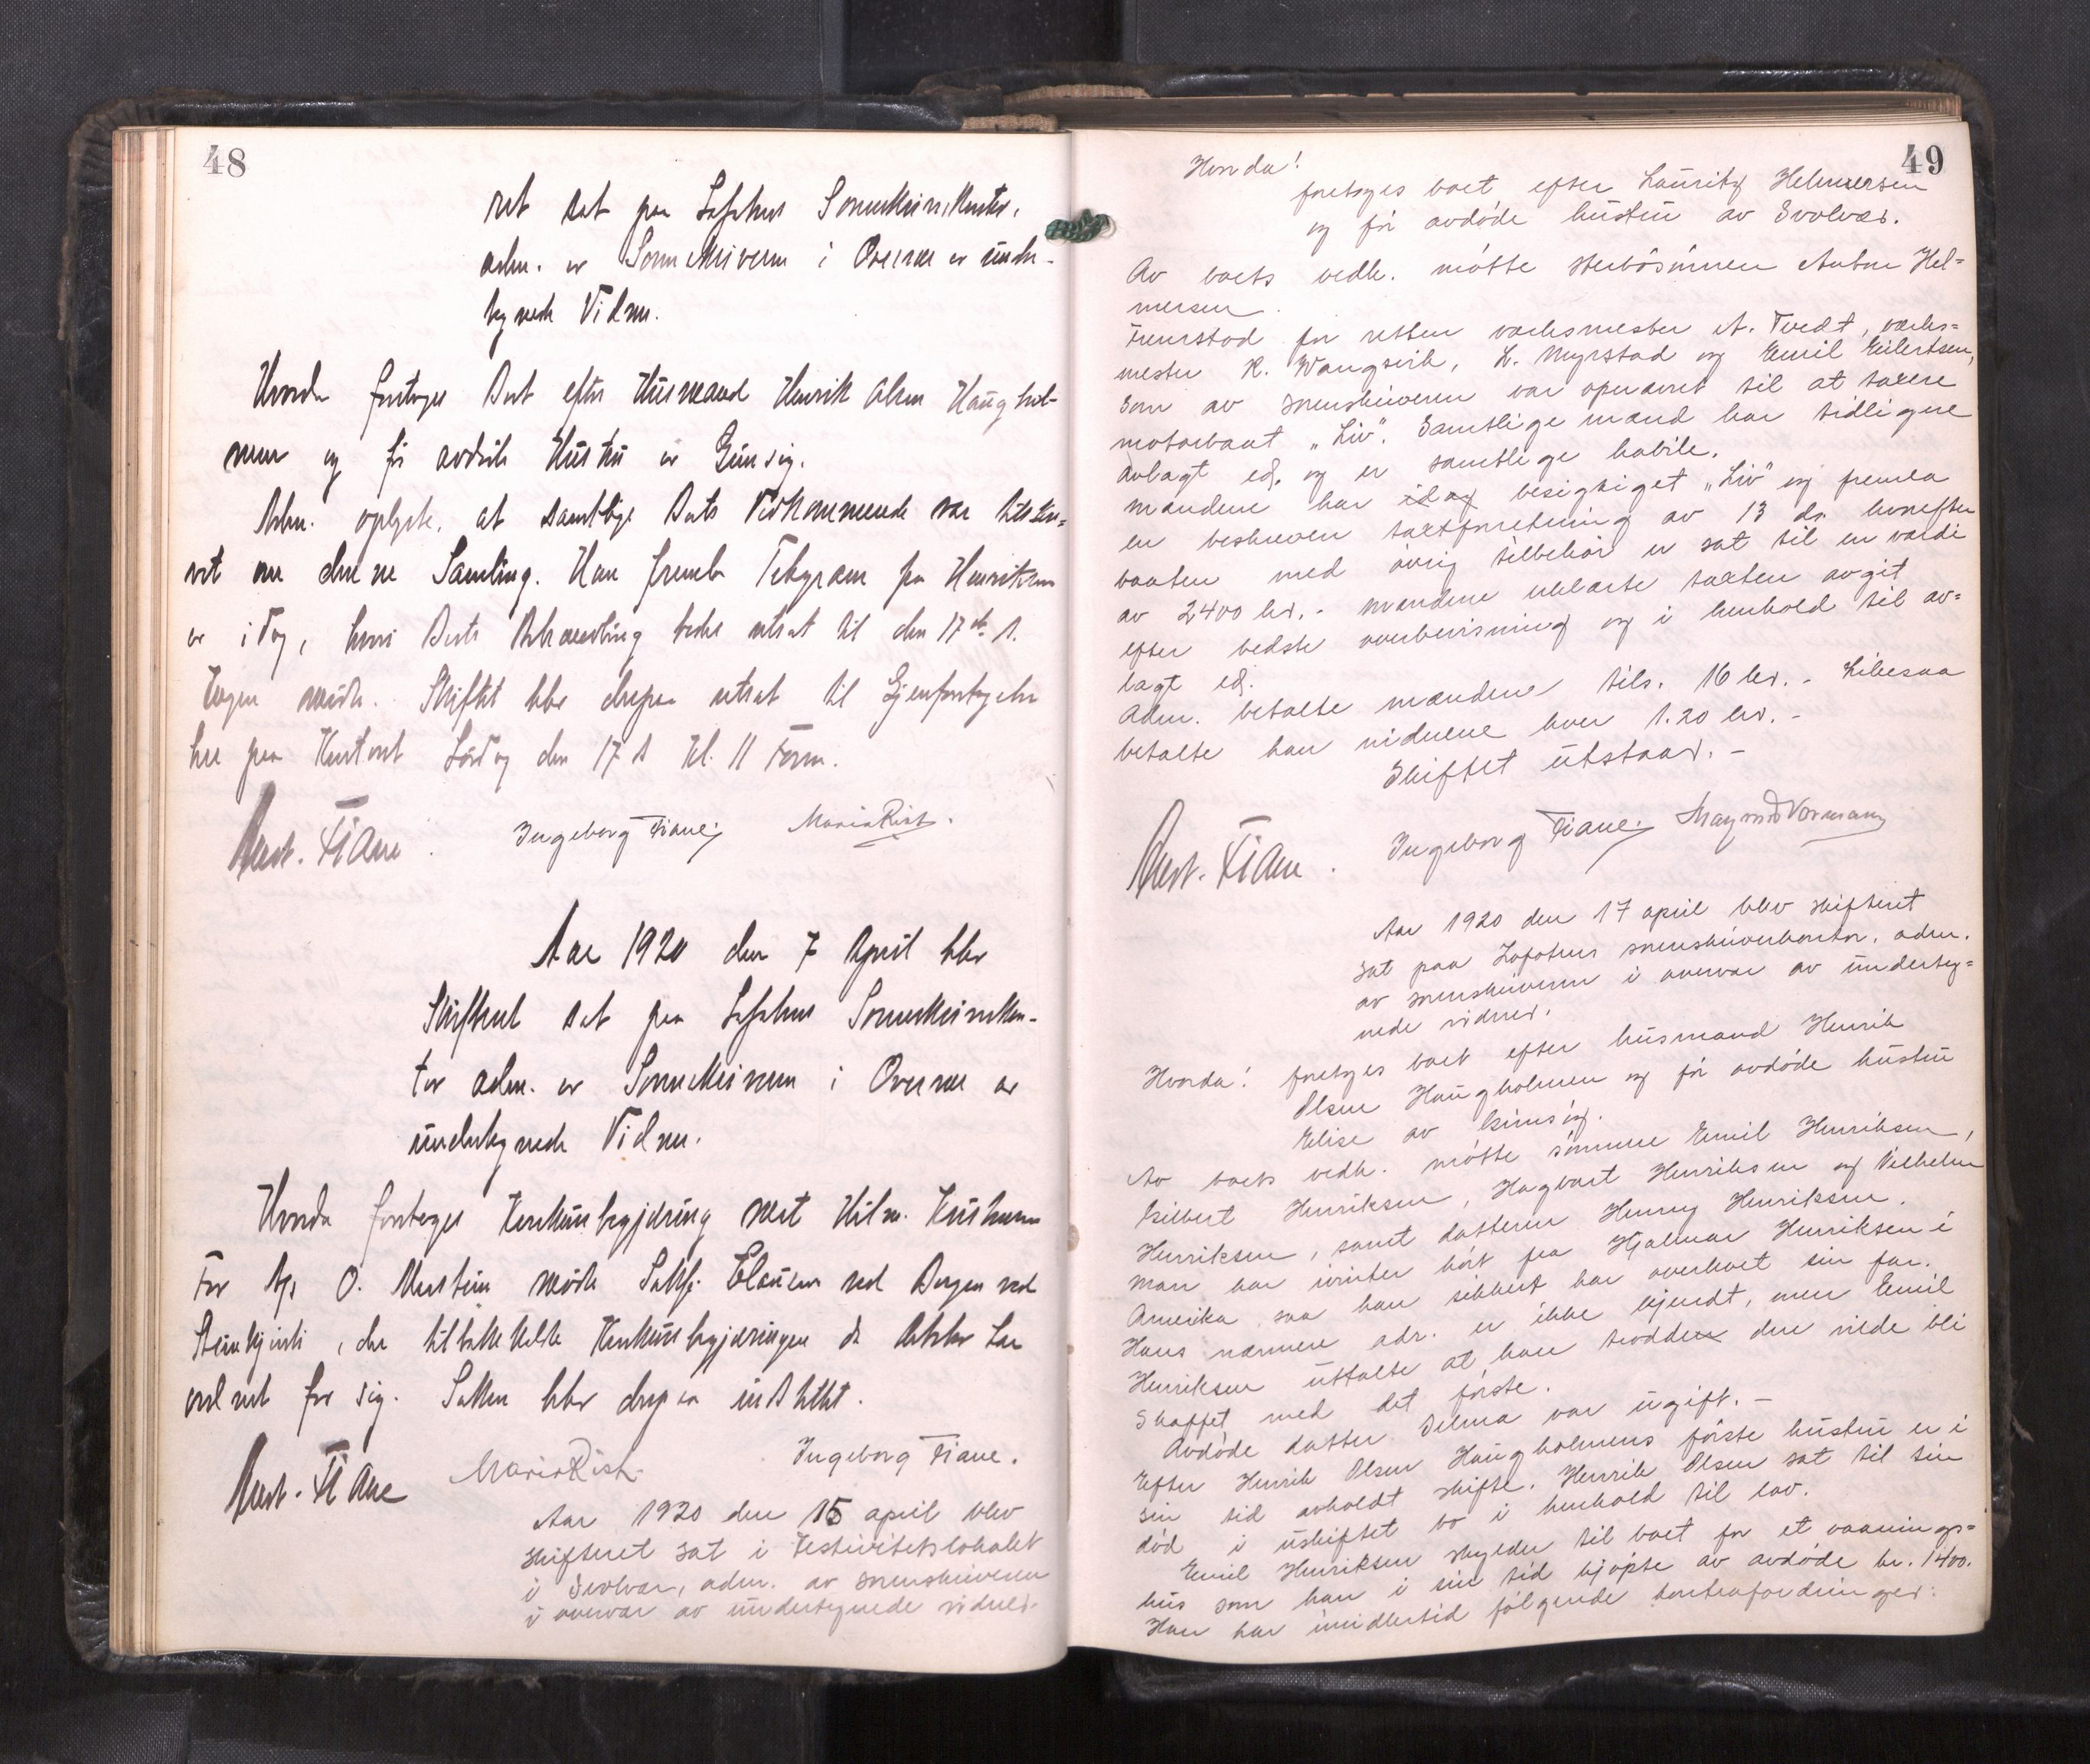 48
ret sat paa Lofotens Sorenskriverkontor,
adm. av Sorenskriveren i Overvær av under-
tegnede Vidner.
Hvorda foretoges Boet efter Husmand Henrik Olsen Haughol-
men og før avdøde Hustru av Gimsøy.
Adm. oplyste, at samtlige Boets Vedkommende var tilskre-
vet om denne Samling. Han fremla Telegram fra Henriksen
av idag, hvori Boets Behandling bedes utsat til den 17de ds.
Ingen møtte. Skiftet blev derpaa utsat til Gjenforetagelse
her paa Kontoret Lørdag den 17 ds Kl. 11 Form.
Ingeborg Fiane, Maria Rist.
Aar 1920 den 7 April blev
Skifteret sat paa Lofotens Sorenskriverkon-
tor adm. av Sorenskriveren i Overvær av
undertegnede Vidner.
Hvorda foretoges Konkursbegjæring mot Hilm.
For O. møtte Sakf. Clausen ved
, der tilbakekaldte Konkursbegjæringen da
ordnet for sig. Sakken blev derpaa indstillet.
Maria Rist. Ingeborg Fiane.
Aar 1920 den 15 april blev
skifteret sat i Festivitetslokalet
i Svolvær, adm. av sorenskriveren
i overvær av undertegnede vidner.
49
Hvorda!
foretoges boet efter Lauritz Helmersen
og før avdøde hustru av Svolvær.
Av boets vedk. møtte sterbosønnen Anton Hel=
mersen.
Fremstod for retten verksmester A. Tvedt, verks=
mester K. Wangsvik, L. Myrstad og Emil Eilertsen,
som av sorenskriveren var opnævnt til at taxere
motorbaat „Liv". Samtlige mænd har tidligere
avlagt ed, og er samtlige habile.
Mændene har idag besigtiget „Liv" og fremla
en beskreven taxtforretning av 13 ds. hvorefter
baaten med øvrig tilbehør er sat til en værdi
av 2400 kr. - Mændene erklærte taxten avgit
efter bedste overbevisning og i henhold til av=
lagt ed.
Adm. betalte mændene tils. 16 kr. - Likesaa
betalte han vidnene hver 1.20 kr. -
Skiftet utstaar. -
Ingeborg Fiane. Magnvd Normann
Aar 1920 den 17 april blev skifteret
sat paa Lofotens sorenskriverkontor, adm.
av sorenskriveren i overvær av underteg=
nede vidner.
Hvorda! foretoges boet efter husmand Henrik
Olsen Haugholmen og før avdøde hustru
Elise av Gimsøy.
Av boets vedk. møtte sønnene Emil Henriksen,
Gilbert Henriksen, Hagbart Henriksen og Vilhelm
Henriksen, samt datteren Henny Henriksen.
Man har ivinter hørt fra Hjalmar Henriksen i
Amerika saa han sikkert har overlevet sin far.
Hans nærmere adr. er ikke kjendt, men Emil
Henriksen uttalte at han trodde den vilde bli
skaffet med det første.
Avdøde datter Selma var ugift. -
Efter Henrik Olsen Haugholmens første hustru er i
sin tid avholdt skifte. Henrik Olsen sat til sin
død i uskiftet bo i henhold til lov.
Emil Henriksen skylder til boet for et vaanings=
hus som han i sin tid kjøpte av avdøde kr. 1400.
Han har imidlertid følgende kontrafordringer: